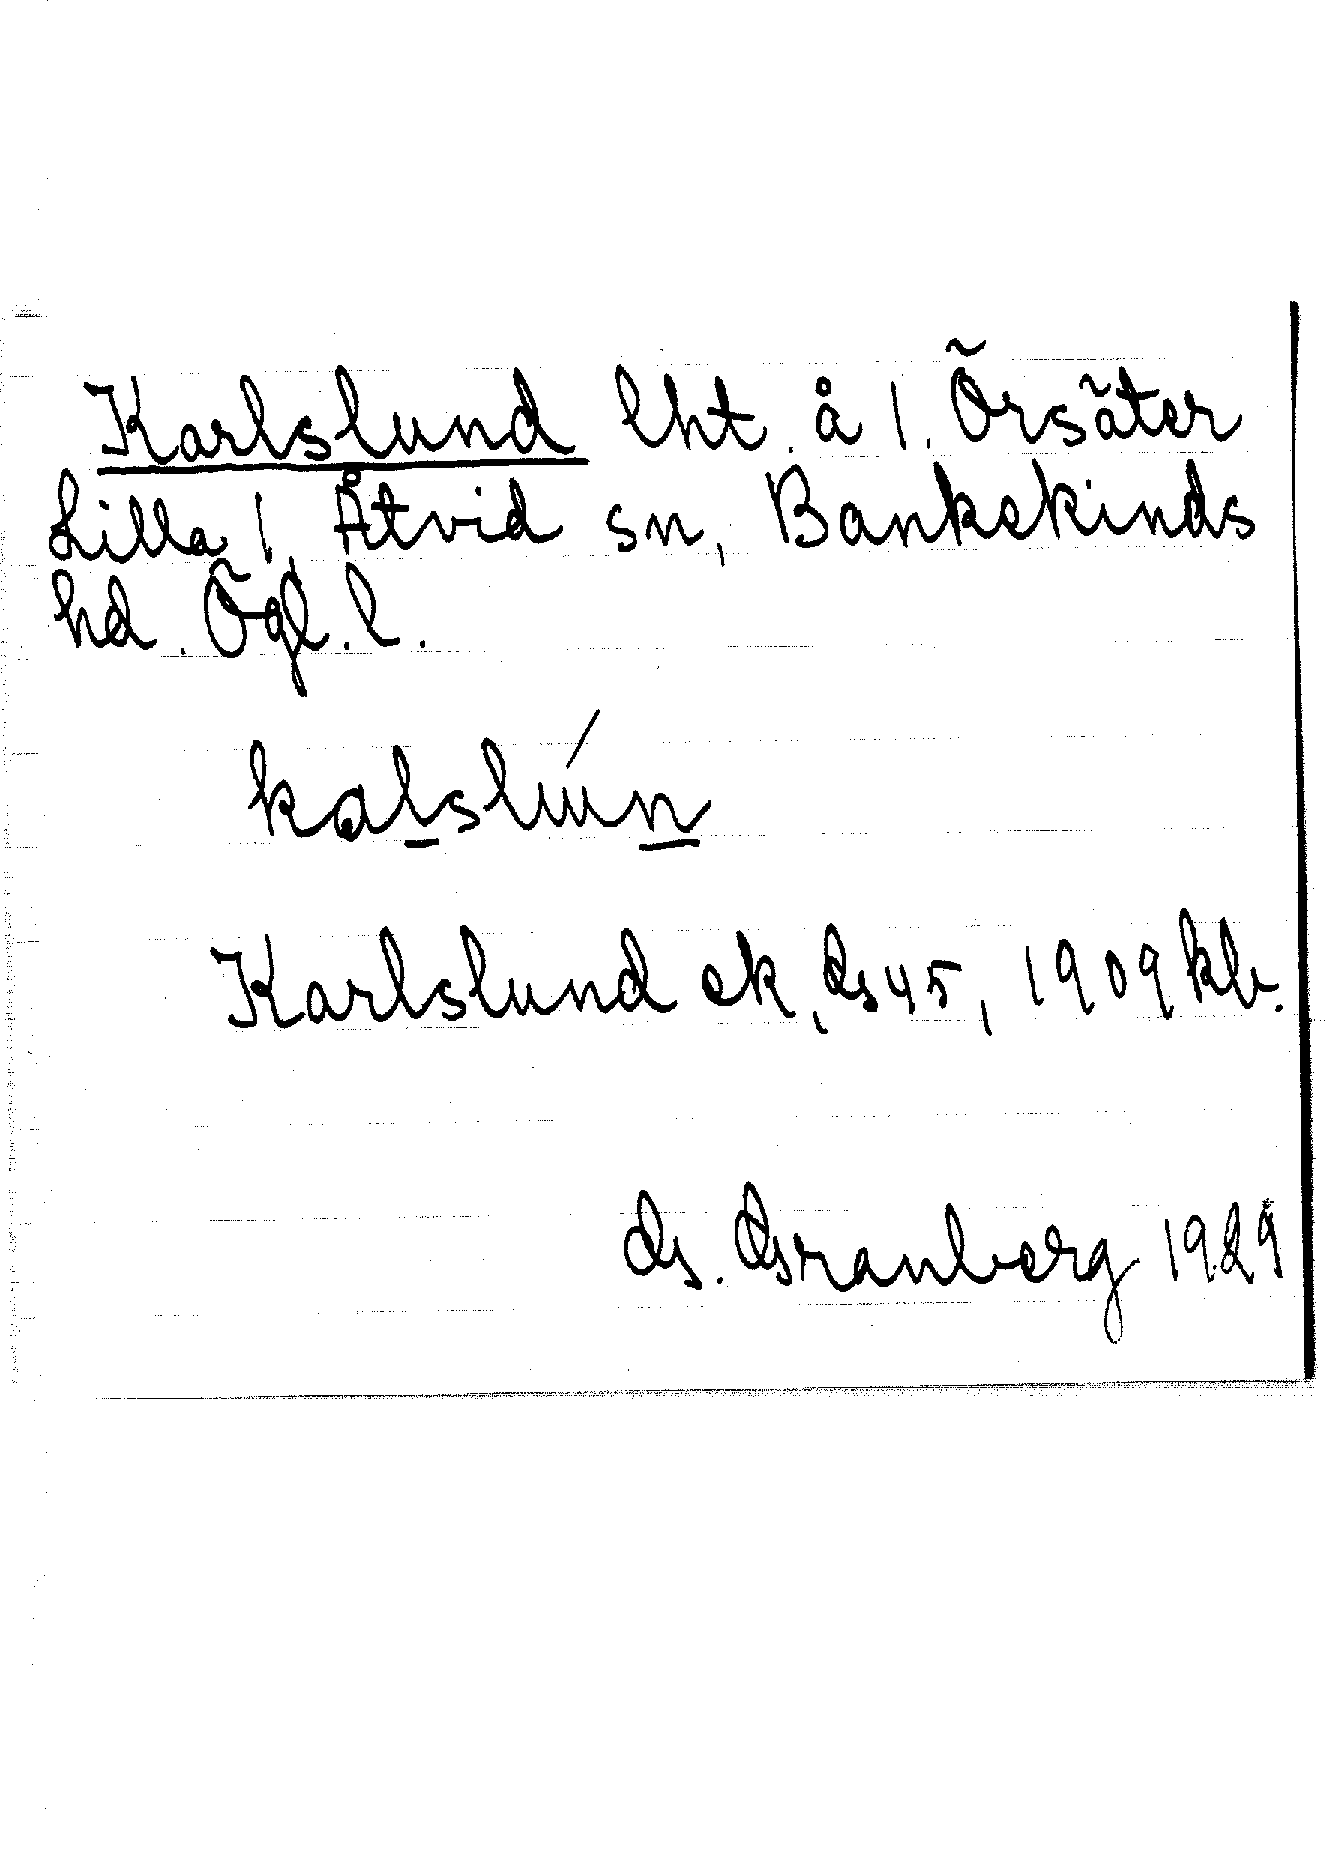 Karlslund lht. å 1. Örsäter
Lilla 1, Åtvid sn, Bankekinds
hd. Ögl. l.
kalslún
Karlslund ek, Gs 45, 1909 kb.
G. Granberg 1929